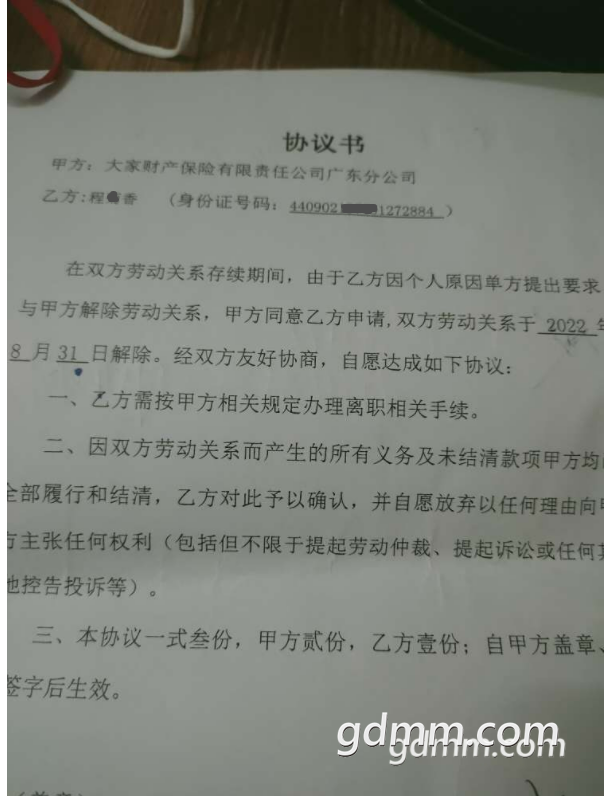 协议书
甲方：大家财产保险有限责任公司广东分公司
乙方:程香 （身份证号码：440902 1272884 ）
在双方劳动关系存续期间，由于乙方因个人原因单方提出要求
与甲方解除劳动关系，甲方同意乙方申请,双方劳动关系于 2022 年
8 月 31 日解除。经双方友好协商，自愿达成如下协议：
一、乙方需按甲方相关规定办理离职相关手续。
二、因双方劳动关系而产生的所有义务及未结清款项甲方均
全部履行和结清，乙方对此予以确认，并自愿放弃以任何理由向甲
方主张任何权利（包括但不限于提起劳动仲裁、提起诉讼或任何其
他控告投诉等）。
三、本协议一式叁份，甲方贰份，乙方壹份；自甲方盖章、
签字后生效。
gdmm.com
gdmm.com